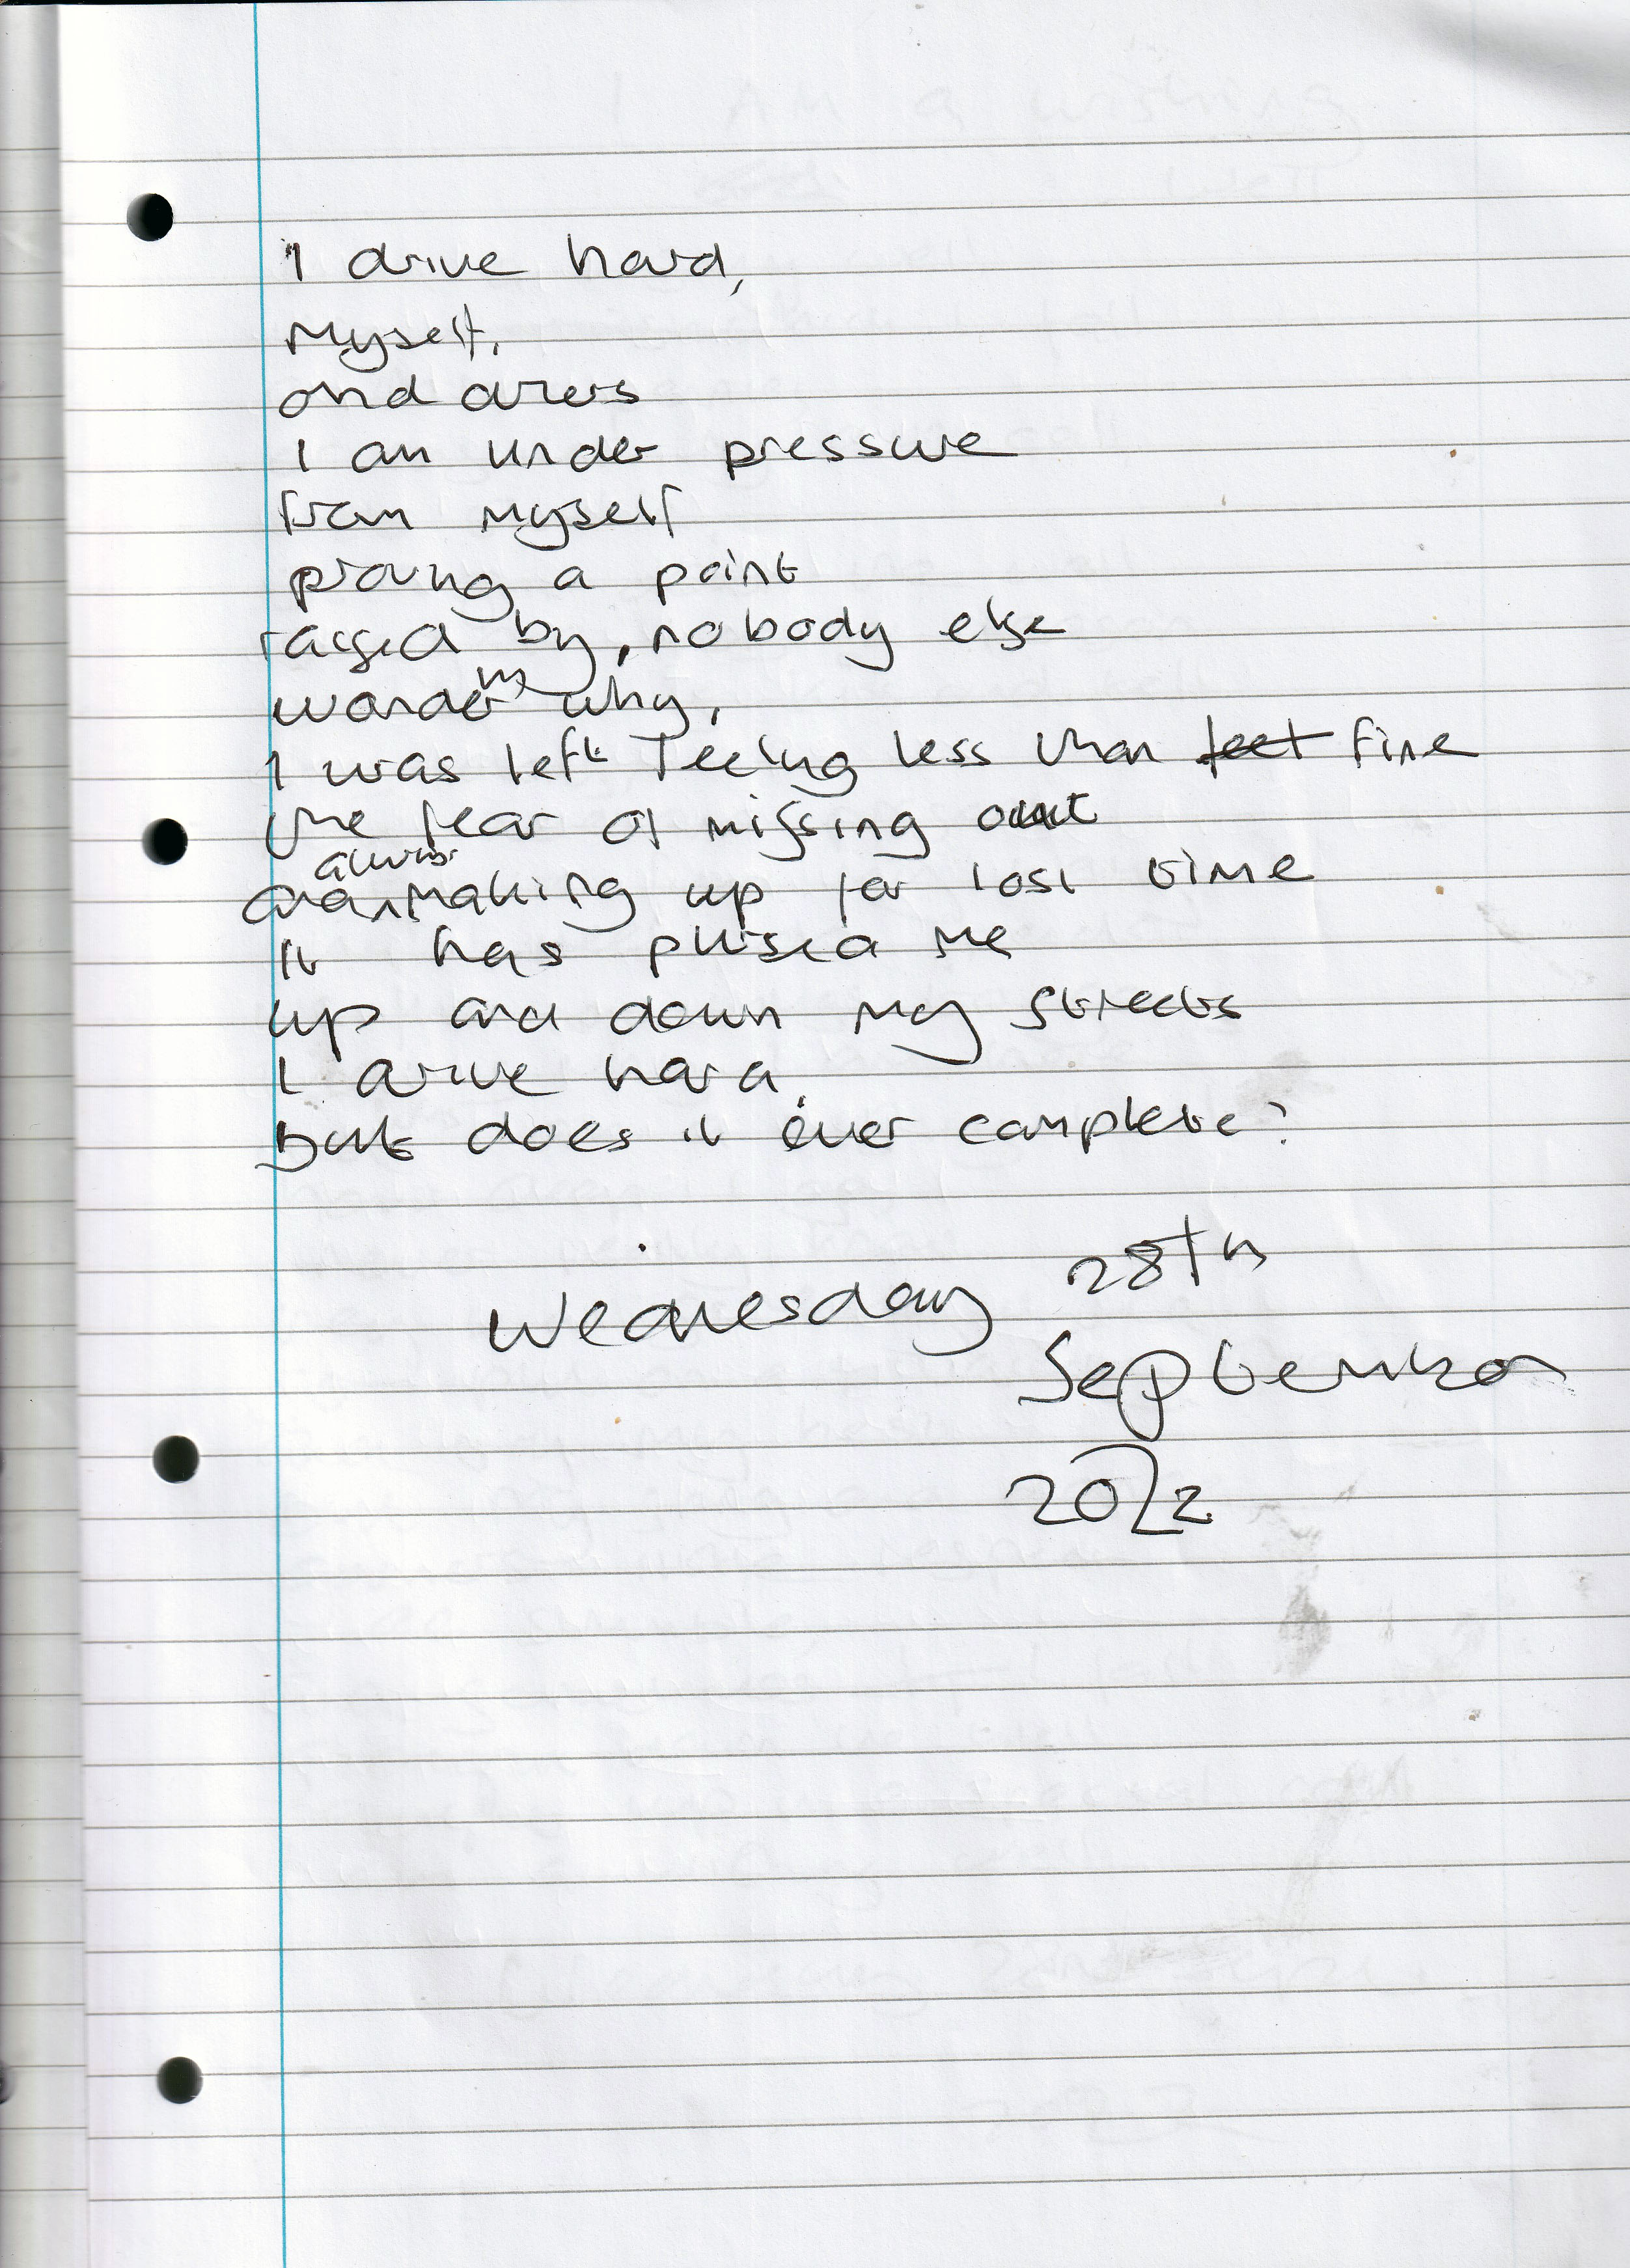 I drive hard,
Myself,
and others
I am under pressure
from myself
proving a point
raised by, nobody else
wondering why,
I was left feeling less than feet fine
the fear of missing out
and always making up for lost time
It has pushed me
up and down my streets
I drive hard,
but does it ever complete?
Wednesday 28Th
September
2022